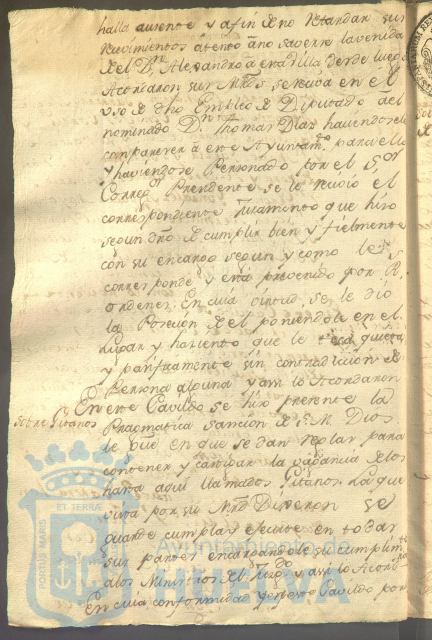 halla ausente y afin de no retardar sus
recivimientos atento a no saverse la venida
del Dn. Alexandro a esta villa desde luego
Acordaron sus Mrds se reciva en el
uso de dho Empleo de Diputado del
nominado Dn. Thomas Diaz haviendosele
comparecer a este Ayuntamto para ello
y haviendose Personado por el Sor
Corregr Presidente se le recivio el
correspondiente Juramento que hizo
segun dro de cumplir bien y fielmente
con su encargo segun y como le
corresponde y esta prevenido por Rs
ordenes, En cuia virtud, se le dio
la Posesion del poniendole en el
Lugar y haciento que le toca quieta
y pacificamente sin contradicion de
Persona alguna y assi lo Acordaron
Sobre Gitanos
En este Cavildo se hizo presente la
Pragmatica sancion de S. M. Dios
le gue en que se dan reglas para
contener y castigar la vagancia de los
hasta aqui llamados Gitanos La que
vista por sus Mrds Dixeron se
guarde cumpla y execute en todas
sus partes encargandole su cumplimto
a los Ministros del Juzgdo y assi lo Acordaron
En cuia conformidad
Cavildo por
PORTUS MARIS
ET TERRAE
Ayuntamiento de
HUELVA